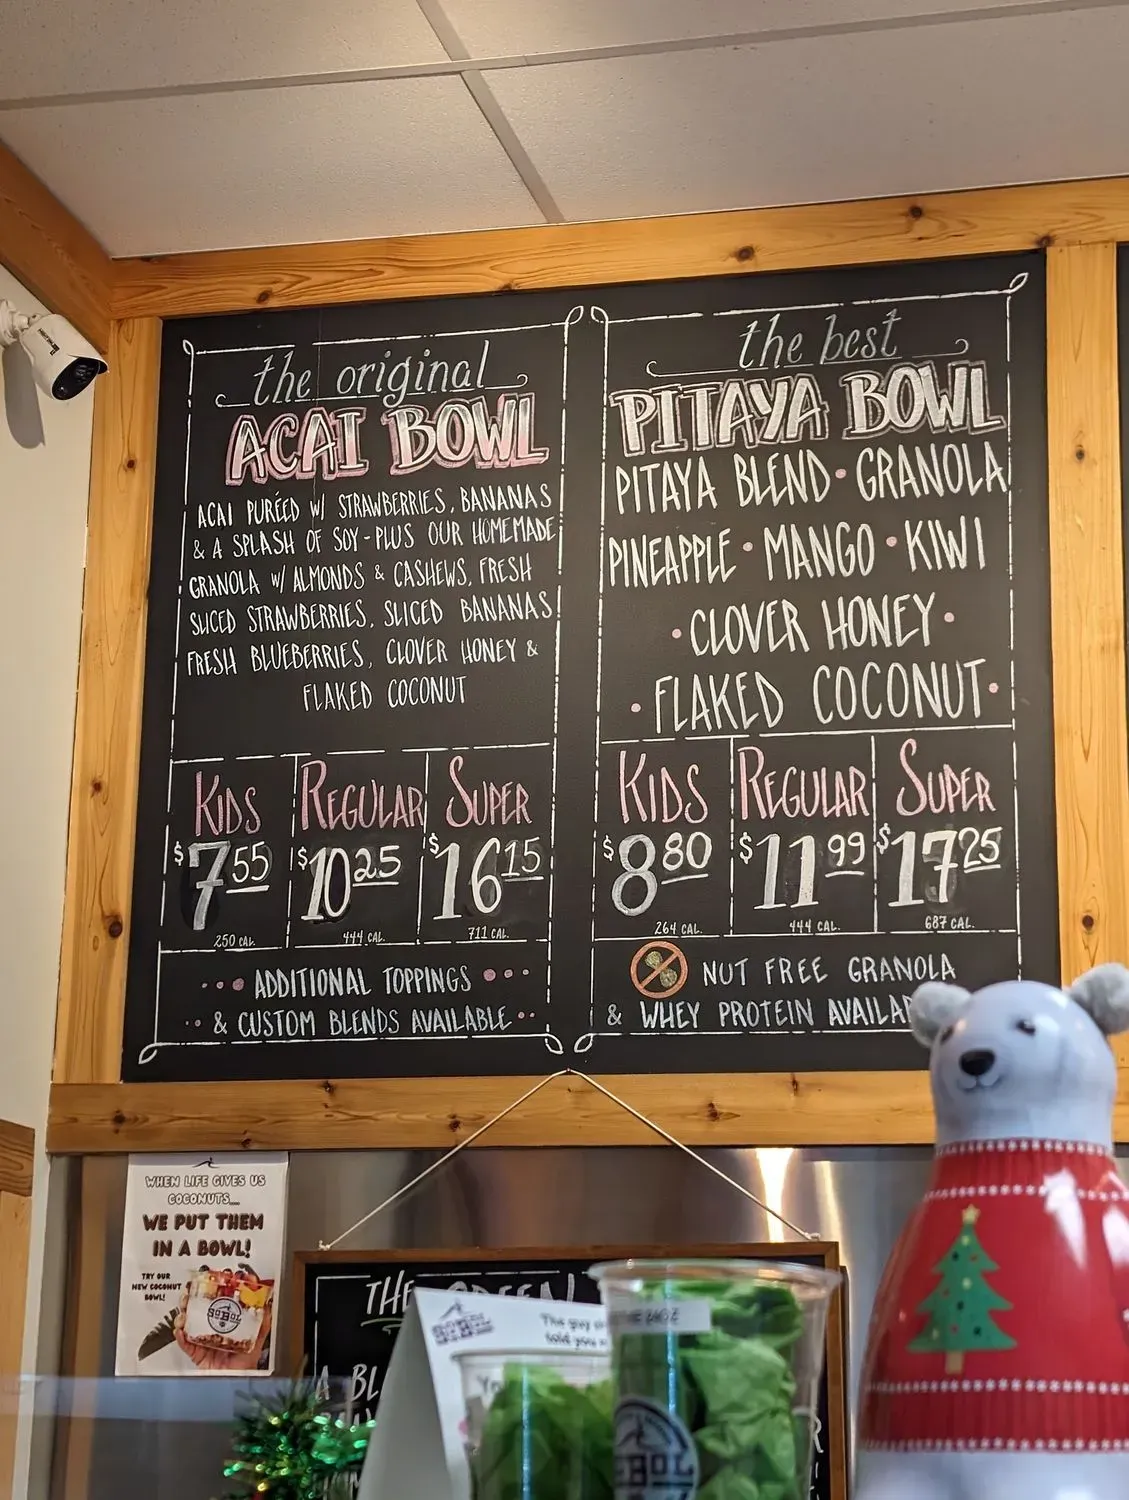 the original
ACAI BOWL
ACAI PURÉED W/ STRAWBERRIES, BANANAS
& A SPLASH OF SOY-PLUS OUR HOMEMADE
GRANOLA W/ ALMONDS & CASHEWS, FRESH
SLICED STRAWBERRIES, SLICED BANANAS
FRESH BLUEBERRIES, CLOVER HONEY &
FLAKED COCONUT
KIDS REGULAR SUPER
$7 55 $10 25 $16 15
250 CAL. 444 CAL. 711 CAL.
ADDITIONAL TOPPINGS
& CUSTOM BLENDS AVAILABLE
the best
PITAYA BOWL
PITAYA BLEND • GRANOLA
PINEAPPLE • MANGO • KIWI
• CLOVER HONEY •
• FLAKED COCONUT •
KIDS REGULAR SUPER
$8 80 $11 99 $17 25
264 CAL. 444 CAL. 687 CAL.
NUT FREE GRANOLA
& WHEY PROTEIN
WHEN LIFE GIVES US
COCONUTS...
WE PUT THEM
IN A BOWL!
TRY OUR
NEW COCONUT
BOWL!
SOBOL
THE GREEN
A BL
SOBOL
The guy
told you